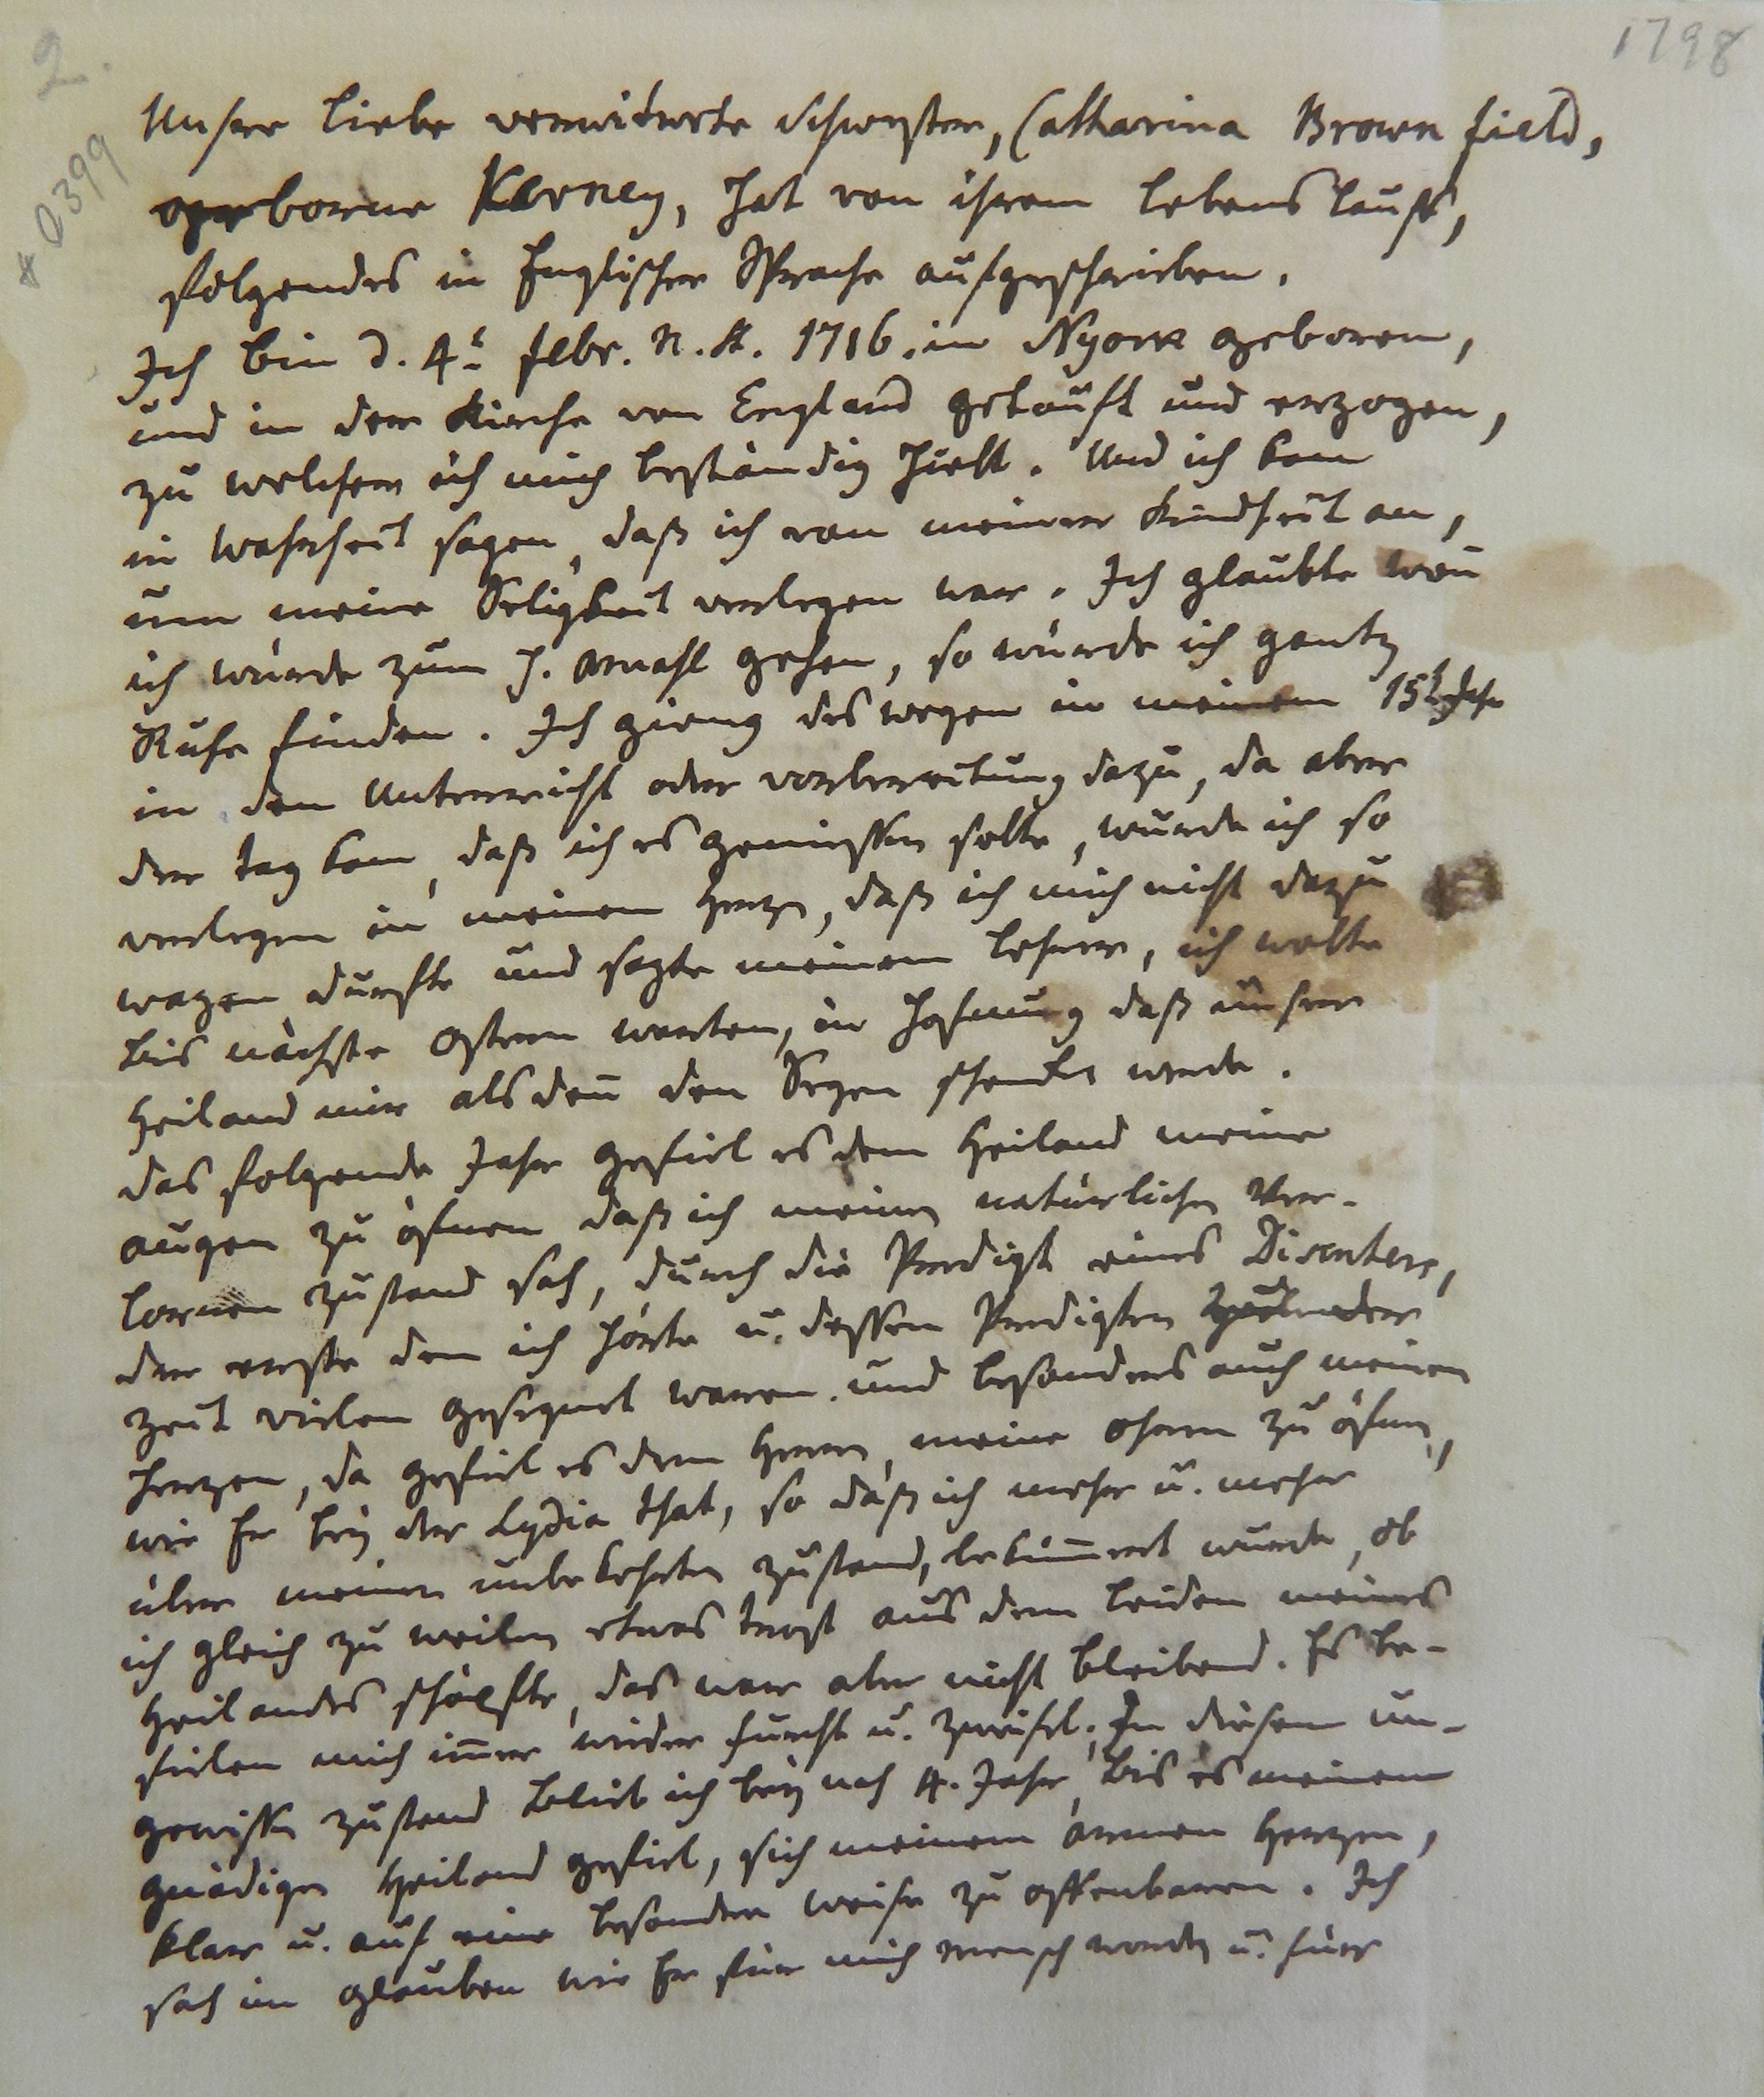 2.
1798
# 0399
Unsre liebe verwitwete Schwester, Catharina Brownfield,
geborne Kerney, hat von ihrem Lebens lauf,
folgendes in Englischer Sprache aufgeschrieben.
Ich bin d. 4t febr. n. St. 1716. in NYork geboren,
und in der Kirche von England getauft und erzogen,
zu welcher ich mich beständig hielt. Und ich kan
in Wahrheit sagen, daß ich von meiner Kindheit an,
um meine Seligkeit verlegen war. Ich glaubte wen̄
ich würde zum h. Amahl gehen, so würde ich gantz
Ruhe finden. Ich gieng deswegen in meinem 15t Jahr
in den Unterricht oder vorbereitung dazu, da aber
der tag kam, daß ich es geniessen solte, wurde ich so
verlegen in meinem Herze, daß ich mich nicht dazu
wagen durfte und sagte meinem Lehrer, ich wolte
bis nächste Ostern warten, in Hofnung daß unser
Heiland mir alsden̄ den Segen schenken werde.
das folgende Jahr gefiel es dem Heiland meine
augen zu öfnen daß ich meinen natürlichen Ver-
lornen zustand sah, durch die Predigt eines Disenters,
der erste den ich hörte u. dessen Predigten zu der
zeit vielen gesegnet waren. und besonders auch meinem
Herzen, da gefiel es dem Herrn, meine Ohren zu öfnen,
wie Er bey der Lydia that, so daß ich mehr u. mehr
über meinen unbekehrten zustand, beküm̄ert wurde, ob
ich gleich zu weilen etwas trost aus dem Leiden meines
Heilandes schöpfte, das war aber nicht bleibend. Es be-
fielen mich im̄er wieder furcht u. zweifel. In diesem un-
gewissen zustand blieb ich bey nah 4. Jahr, bis es meinem
gnädigen Heiland gefiel, sich meinem armen Herzen,
klar u. auf eine besondere weise zu offenbaren. Ich
sah im glauben wie Er für mich mensch worden u. für